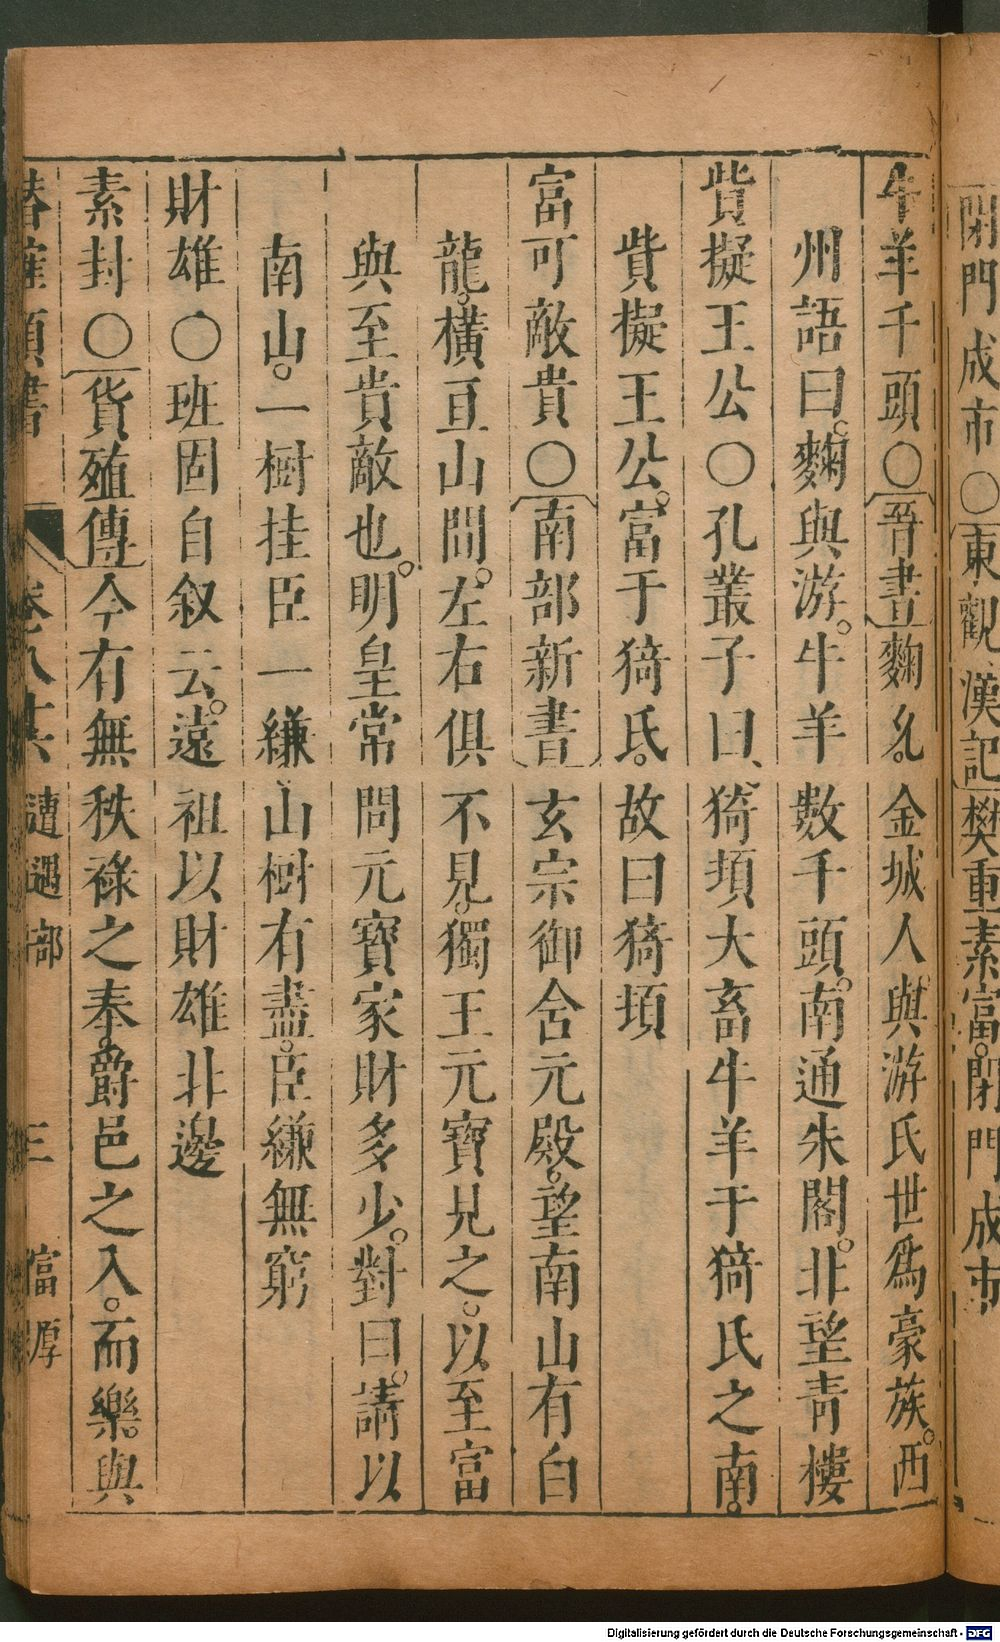 閉門成市〇東觀漢記樊重素富。閉門成市
牛羊千頭〇晉書麴允。金城人。與游氏世爲豪族。西
州語曰。麴與游。牛羊數千頭。南通朱閣。北望青樓
貲擬王公〇孔叢子曰、猗頓大畜牛羊于猗氏之南。
貲擬王公。富于猗氏。故曰猗頓
富可敵貴〇南部新書玄宗御含元殿。望南山有白
龍。橫亘山間。左右俱不見。獨王元寶見之。以至富
與至貴敵也。明皇常問元寶家財多少。對曰。請以
南山。一樹挂臣一縑、山樹有盡。臣縑無窮
財雄〇班固自叙云。遠祖以財雄非邊
素封〇貨殖傳今有無秩祿之奉。爵邑之入。而樂。與
卷八十六 遭遇部 三 富厚
Digitalisierung gefördert durch die Deutsche Forschungsgemeinschaft - DFG